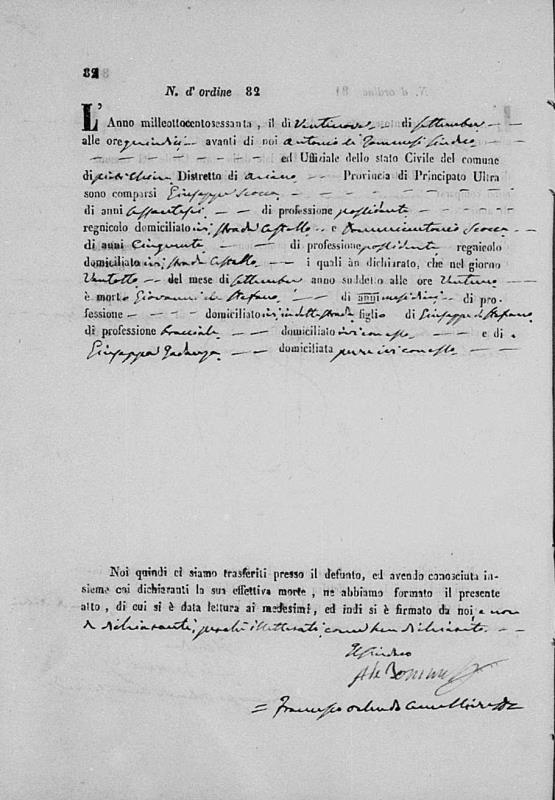 82
N. d' ordine 82
L' Anno milleottocentosessanta, il di ventinove di settembre
alle ore quindici avanti di noi Antonio de Tommasi Sindaco
ed Uffiziale dello stato Civile del comune
di Distretto di Ariano Provincia di Principato Ultra
sono comparsi Giuseppe Scocca
di anni di professione possidente
regnicolo domiciliato ivi strada Castello e Domenicantonio Scocca
di anni Cinquanta di professione possidente regnicolo
domiciliato ivi strada Castello i quali àn dichiarato, che nel giorno
Ventotto del mese di settembre anno suddetto alle ore Ventuno
è morto Giovanni de Stefano di anni mesi di pro-
fessione domiciliato ivi in detta strada figlio di Giuseppe de Stefano
di professione bracciale domiciliato ivi con esso e di
Giuseppa domiciliata pure ivi con esso
Noi quindi ci siamo trasferiti presso il defunto, ed avendo conosciuta in-
sieme coi dichiaranti la sua effettiva morte, ne abbiamo formato il presente
atto, di cui si è data lettura ai medesimi, ed indi si è firmato da noi, e non
da dichiaranti, perchè illetterati, come han dichiarato.
Il Sindaco
A de Tommasi
= Francesco Orlando